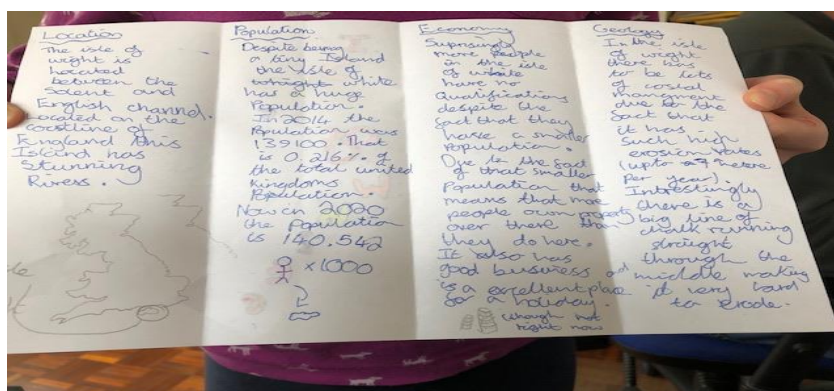 Location
The isle of
wight is
located
between the
Solent and
English channel.
ocated on the
coastline of
England this
Island has
Stunning
Rivers.
Population
Despite being
a tiny Island
the isle of
white
has a huge
Population.
In 2014 the
Population was
139100. That
is 0.216% of
the total united
Kingdoms
Population.
Now in 2020
the population
is 140.542
×1000
Economy
Suprisingly
more people
in the isle
of white
have no
Qualifications
despite the
fact that they
have a smaller
Population.
Due to the fact
of that smaller
Population that
means that more
people own property
over there than
they do here.
It also has
good business and
is a excellent place
for a holiday.
(though not
right now
Geology
In the isle
of wight
there has
to be lots
of costal
managment
due to the
fact that
it has
such high
erosion rates
(up to a metere
per year).
Intrestingly
there is a
big line of
chalk running
straight
through the
middle making
it very hard
to erode.